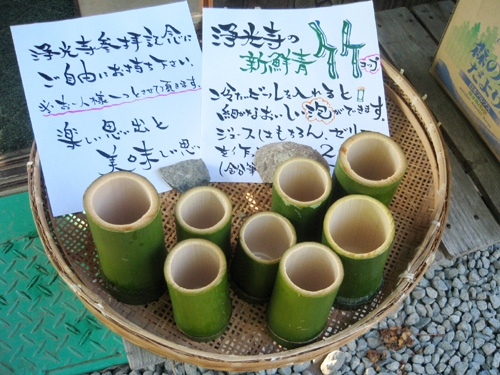 浄光寺参拝記念に
ご自由にお持ち下さい。
※お一人様一つとさせて頂きます。
楽しい思い出と
美味しい思い
浄光寺の
新鮮青竹
コップ
冷たいビールを入れると
細かなおいしい泡ができます。
ジュースはもちろん、ゼリー
2